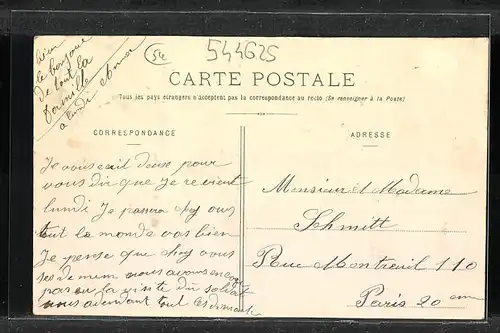 bien
le bonjour
de tout la
famille
a lundi
54
544625
CARTE POSTALE
Tous les pays étrangers n'acceptent pas la correspondance au recto (Se renseigner à la Poste)
CORRESPONDANCE
Je vous ecrit deux pour
vous dir que Je revient
lundi Je passera chez vous
tout le monde vas bien
Je pense que chez vous
ses de meme nous avons
pas eu la visite du soldat
nous attendant tout les dimanche
ADRESSE
Monsieur et Madame
Schmitt
Rue Montreuil 110
Paris 20 em